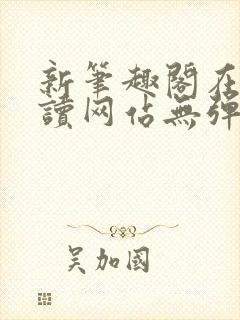 新筆趣閣在
讀网佔無彈
吴加國